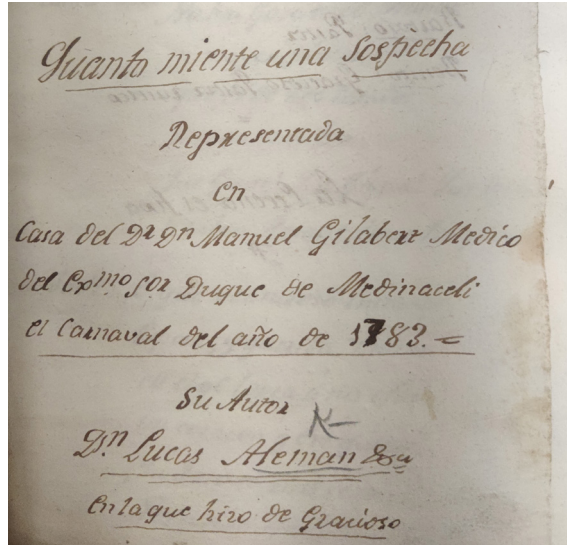 Quanto miente una Sospecha
Representada
en
Casa del Dr Dn Manuel Gilabert Medico
del Exmo Sor Duque de Medinaceli
el Carnaval del año de 1783.=
Su Autor
Dn. Lucas Aleman &a
en la que hizo de Gracioso